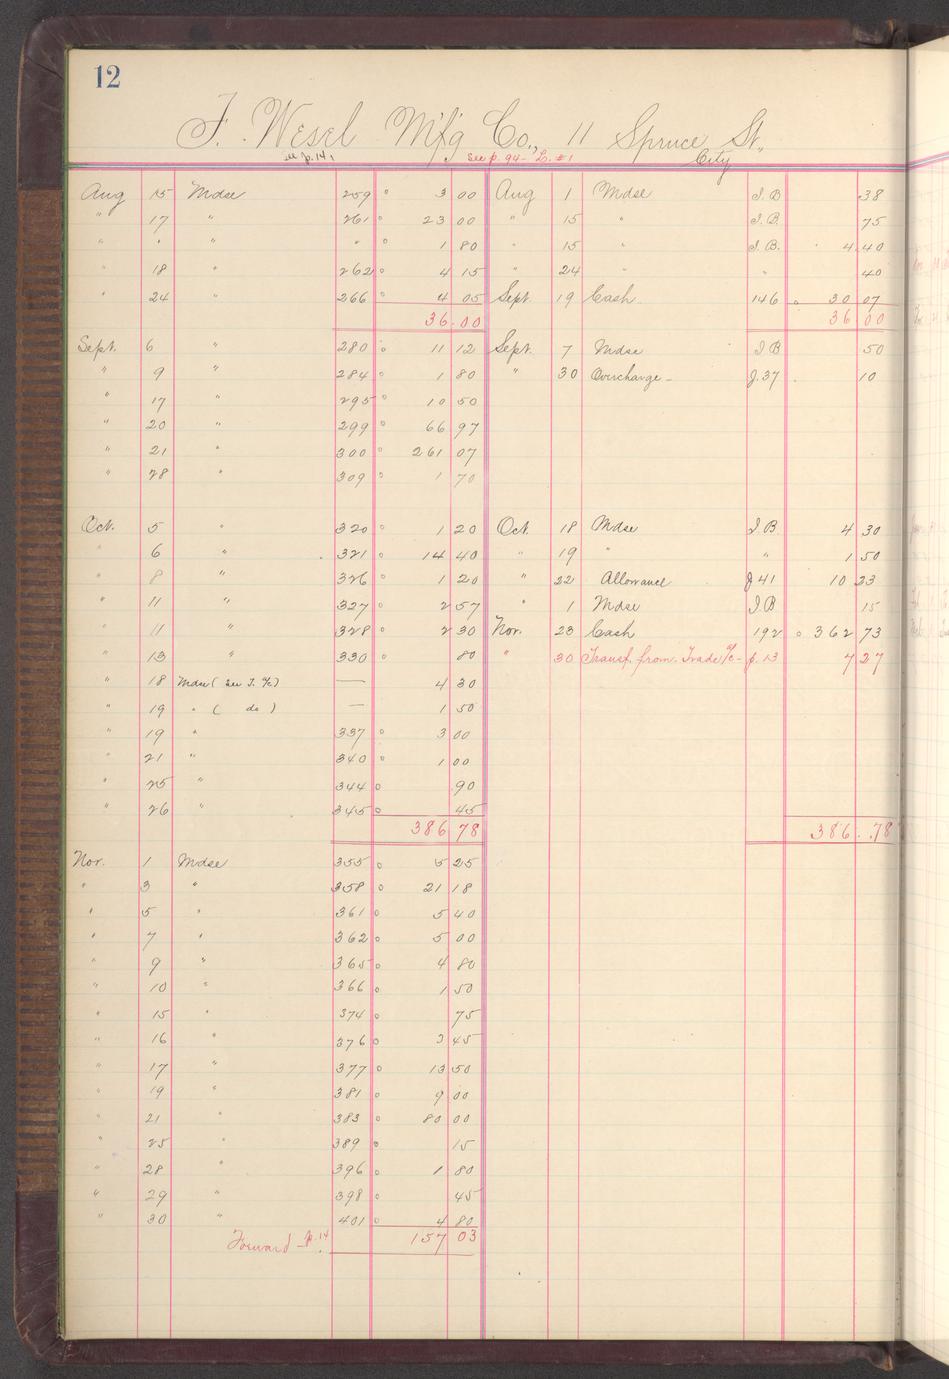 12
F. Wesel Mf'g Co., 11 Spruce St.,
see p. 141 See p. 94 - L. #1 City
Aug 15 Mdse 259 3 00 Aug 1 Mdse I.B .38
" 17 " 261 23 00 " 15 " I.B. 75
" " " " 1 80 " 15 " I.B. 4.40
" 18 " 262 4 15 " 24 " " 40
" 24 " 266 4 05 Sept. 19 Cash 146 30 07
36.00 36 00
Sept. 6 " 280 11 12 Sept. 7 Mdse I B 50
" 9 " 284 1 80 " 30 Overcharge - J. 37 10
" 17 " 295 10 50
" 20 " 299 66 97
" 21 " 300 261 07
" 28 " 309 1 70
Oct. 5 " 320 1 20 Oct. 18 Mdse I.B 4 30
" 6 " 321 14 40 " 19 " " 1 50
" 8 " 326 1 20 " 22 Allowance J 41 10 23
" 11 " 327 2 57 " 1 Mdse I B 15
" 11 " 328 2 30 Nov. 23 Cash 192 362 73
" 13 " 330 80 " 30 Transf. from Trade a/c - p. 13 7 27
" 18 Mdse (See T. a/c) — 4 30
" 19 " ( do ) — 1 50
" 19 " 337 3 00
" 21 " 340 1 00
" 25 " 344 .90
" 26 " 345 .45
386 78 386.78
Nov. 1 Mdse 355 5 25
" 3 " 358 21 18
" 5 " 361 5 40
" 7 " 362 5 00
" 9 " 365 4 80
" 10 " 366 1 50
" 15 " 374 75
" 16 " 376 3 45
" 17 " 377 13 50
" 19 " 381 9 00
" 21 " 383 80 00
" 25 " 389 15
" 28 " 396 1 80
" 29 " 398 45
" 30 " 401 4 80
Forward - p. 14 157 03